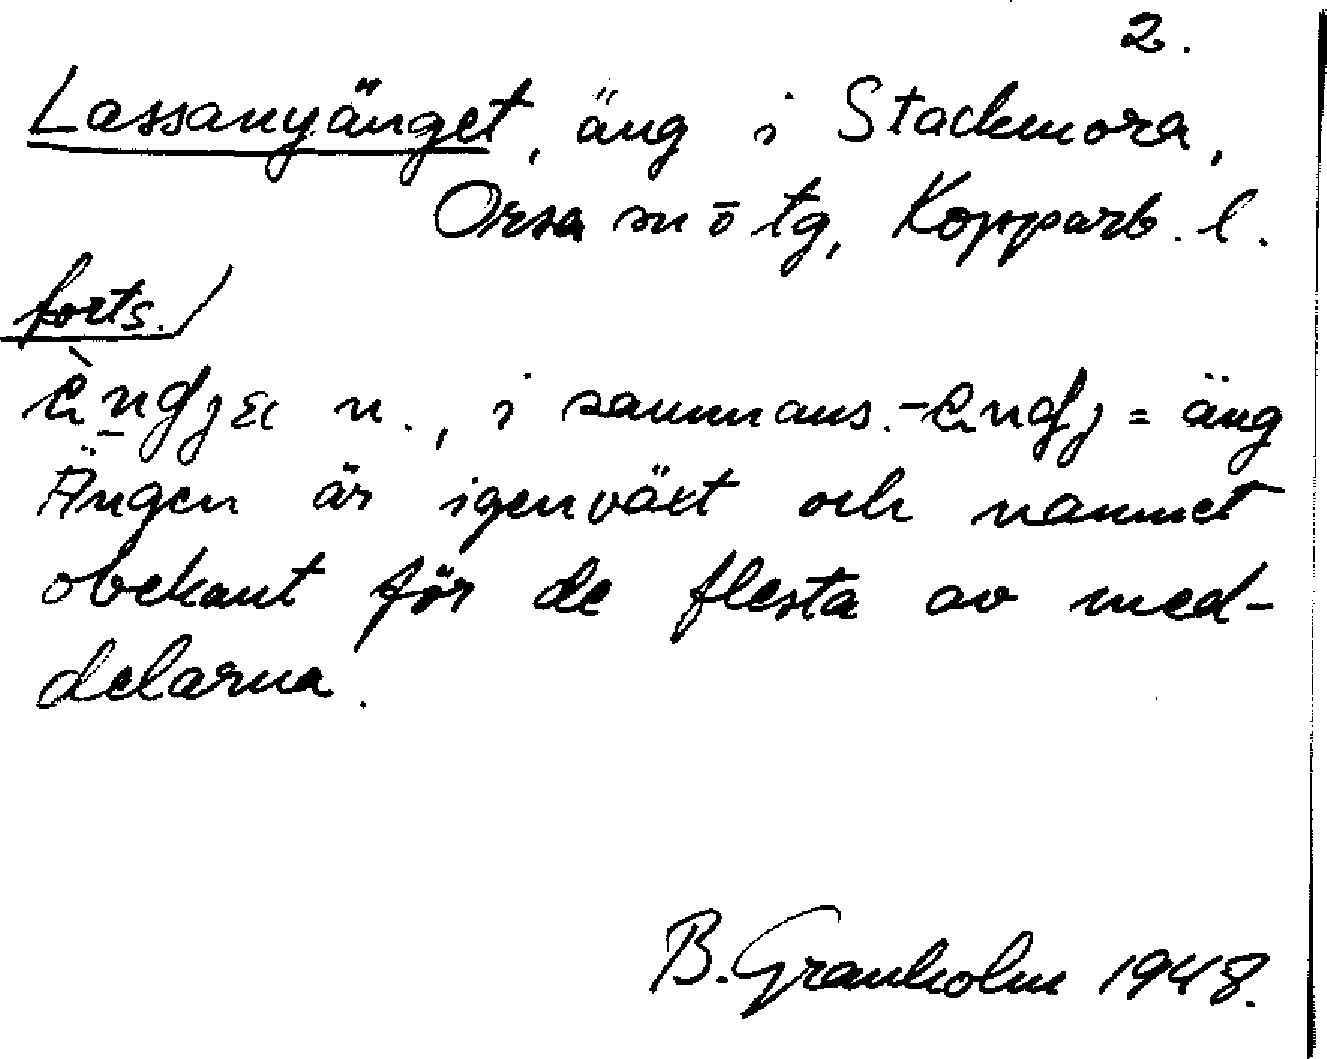 2.
Lassanyänget, äng i Stackmora,
Orsa sn ō tg, Kopparb. l.
forts./
n., i sammans. = äng
Ängen är igenväxt och namnet
obekant för de flesta av med-
delarna.
B. Granholm 1948.